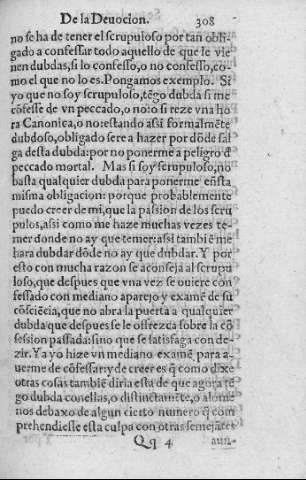 De la Deuocion. 308
no se ha de tener el scrupuloso por tan obli-
gado a confessar todo aquello de que le vie-
nen dubdas, si lo confesso, o no confesso, co-
mo el que no lo es. Pongamos exemplo. Si
yo que no soy scrupuloso, tẽgo dubda si me
cõfesse de vn peccado, o no: o si reze vna ho
ra Canonica, o no: estando assi formalmẽte
dubdoso, obligado sere a hazer por dõde sal
ga desta dubda: por no ponerme a peligro d̃
peccado mortal. Mas si soy scrupuloso, no
basta qualquier dubda para ponerme eñsta
misma obligacion: porque probablemente
puedo creer de mi, que la passion de los scru
pulos, assi como me haze muchas vezes te-
mer donde no ay que temer: assi tambiẽ me
hara dubdar dõde no ay que dubdar. Y por
esto con mucha razon se aconseja al scrupu
loso, que despues que vna vez se ouiere con
fessado con mediano aparejo y examẽ de su
cõsciẽcia, que no abra la puerta a qualquier
dubda que despues se le ofrezca sobre la cõ
fession passada: sino que se satisfaga con de-
zir. Ya yo hize vn mediano examẽ para a-
uerme de cõfessar: y de creer es q̃ como dixe
otras cosas tambiẽ diria esta de que agora tẽ
go dubda con ellas, o distinctamẽte, o alome
nos debaxo de algun cierto numero q̃ com
prehendiesse esta culpa con otras semejãtes
Qq 4 aun-